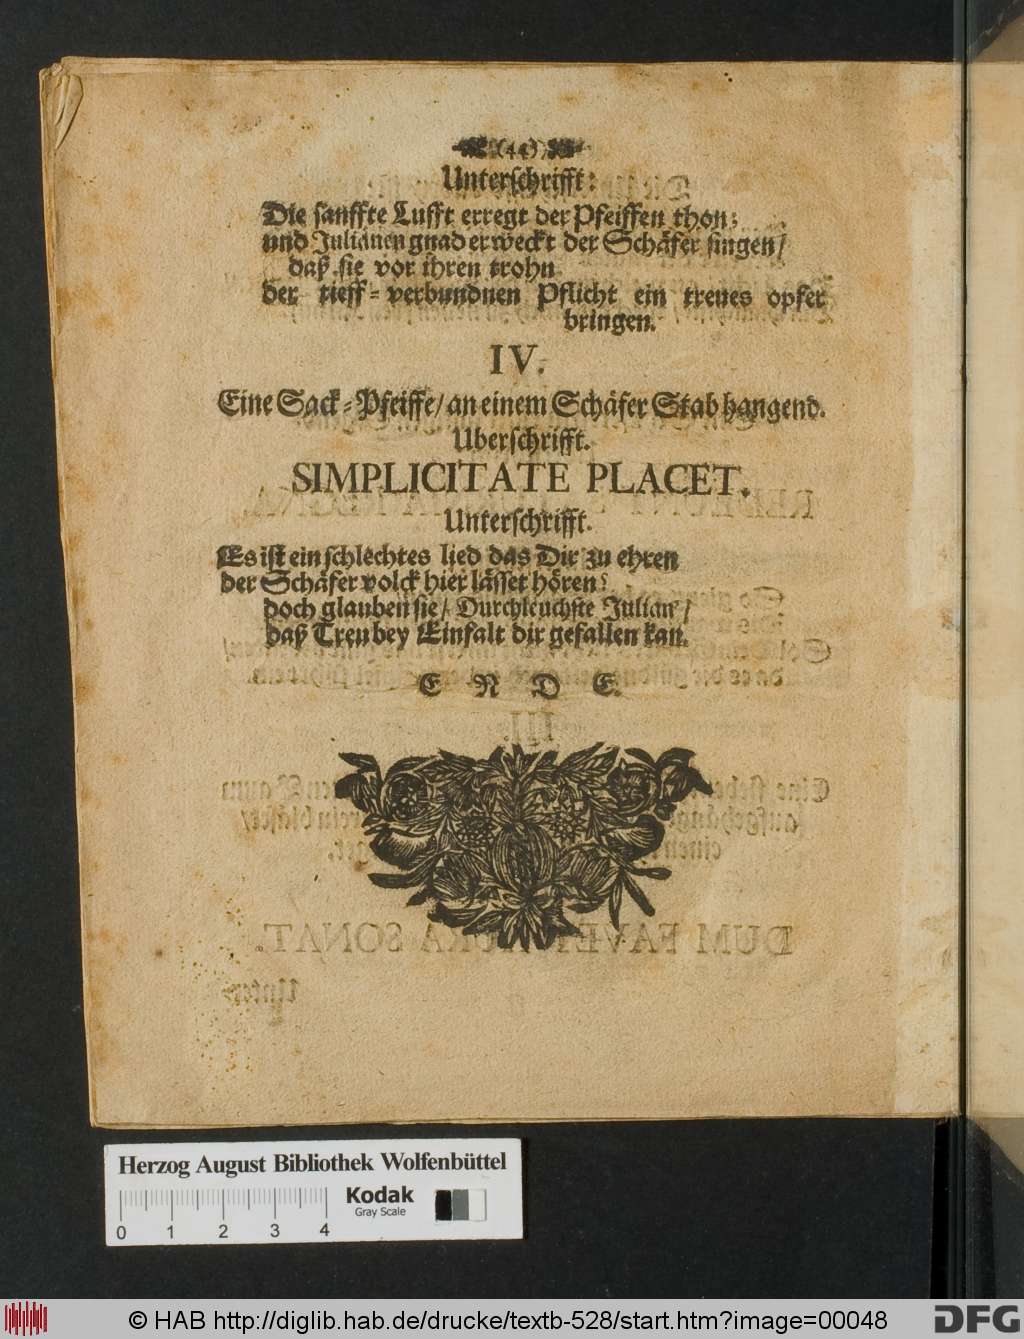 (44)
Unterschrifft:
Die sanffte Lufft erregt der Pfeiffen thon;
und Julianen gnad erweckt der Schäfer singen/
daß sie vor ihren trohn
der tieff-verbundnen Pflicht ein treues opfer
bringen.
IV.
Eine Sack-Pfeiffe/ an einem Schäfer Stab hangend.
Uberschrifft.
SIMPLICITATE PLACET.
Unterschrifft.
Es ist ein schlechtes lied das Dir zu ehren
der Schäfer volck hier lässet hören;
doch glauben sie/ Durchleuchste Julian'/
daß Treu bey Einfalt dir gefallen kan.
ENDE.
Herzog August Bibliothek Wolfenbüttel
Kodak
Gray Scale
0 1 2 3 4
© HAB http://diglib.hab.de/drucke/textb-528/start.htm?image=00048
DFG